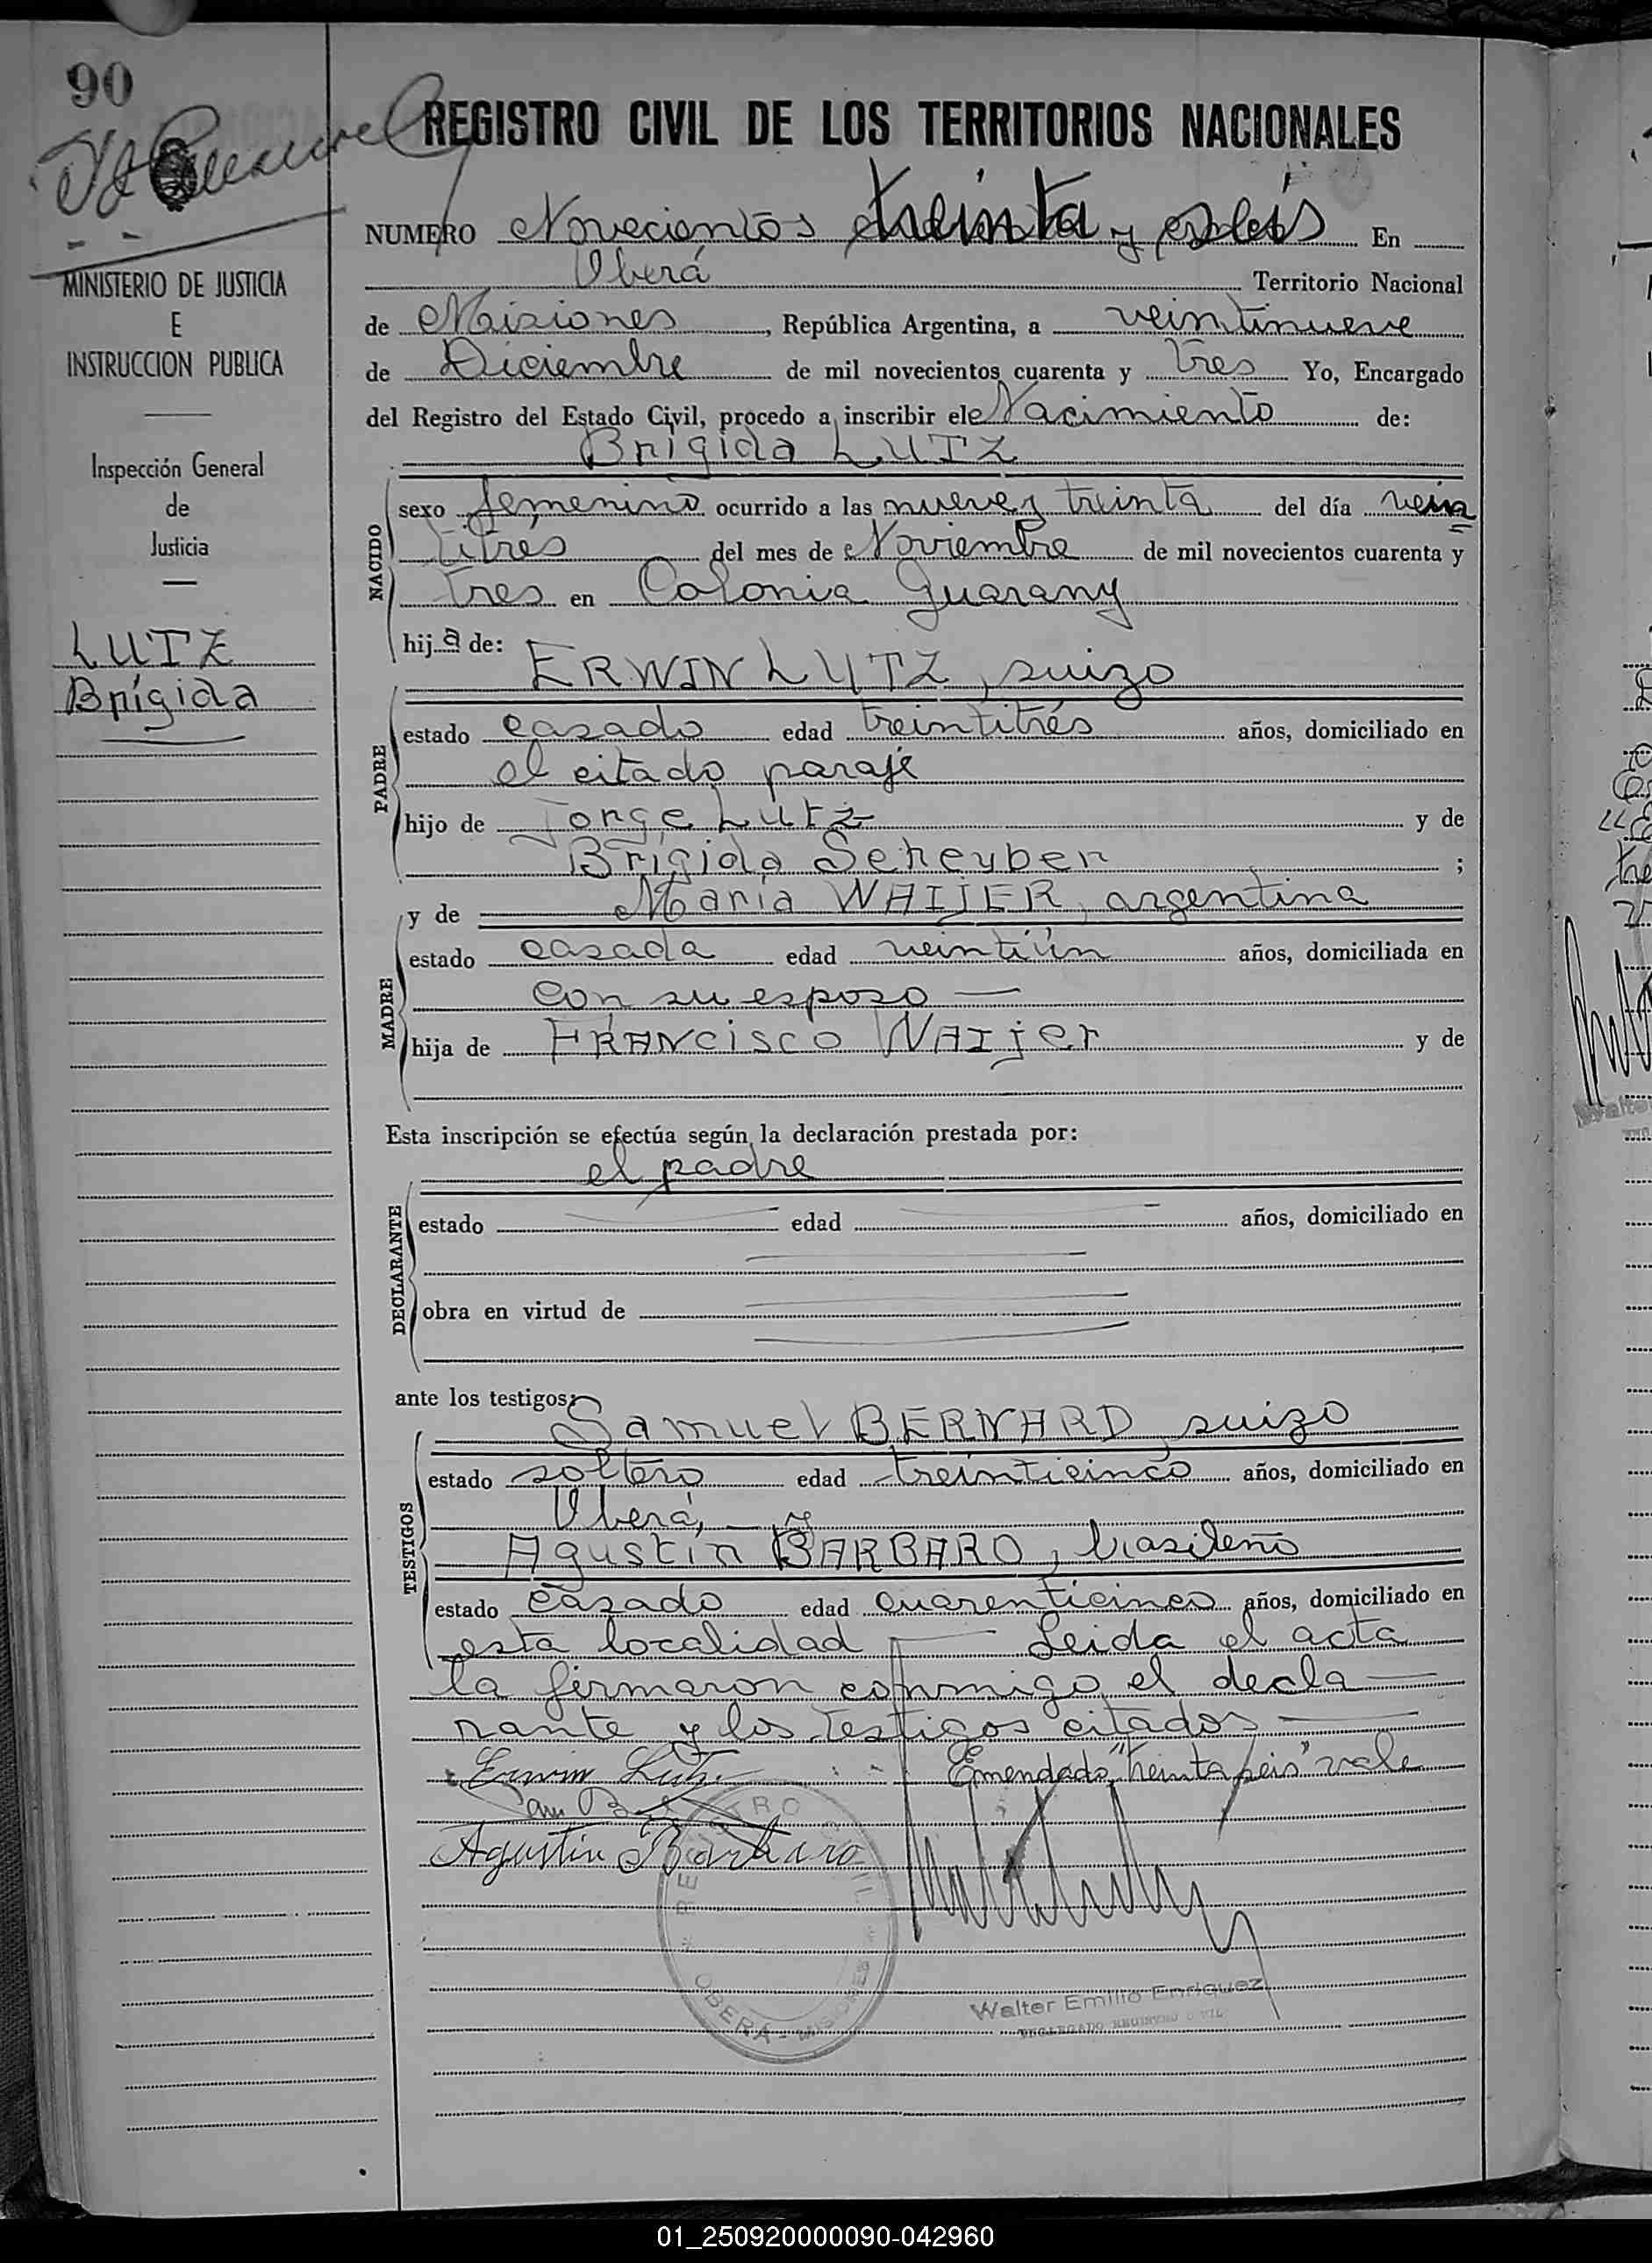 90
REGISTRO CIVIL DE LOS TERRITORIOS NACIONALES
NUMERO Novecientos treinta y seis En
Oberá Territorio Nacional
de Misiones, República Argentina, a veintinueve
de Diciembre de mil novecientos cuarenta y tres Yo, Encargado
del Registro del Estado Civil, procedo a inscribir el Nacimiento de:
Brígida LUTZ
MINISTERIO DE JUSTICIA
E
INSTRUCCION PUBLICA
Inspección General
de
Justicia
LUTZ
Brígida
NACIDO
sexo femenino ocurrido a las nueve y treinta del día vein
titres del mes de Noviembre de mil novecientos cuarenta y
tres en Colonia Guarany
hij a de:
PADRE
ERWIN LUTZ, suizo
estado casado edad treintitrés años, domiciliado en
el citado paraje
hijo de Jorge Lutz y de
Brígida Scheyber ;
MADRE
y de María WAIJER, argentina
estado casada edad veintiún años, domiciliada en
con su esposo —
hija de FRANcisco WAIjer y de
Esta inscripción se efectúa según la declaración prestada por:
el padre
DECLARANTE
estado edad años, domiciliado en
obra en virtud de
ante los testigos:
TESTIGOS
Samuel BERNARD, suizo
estado soltero edad treinticinco años, domiciliado en
Oberá, — y
Agustín BARBARO, brasileño
estado casado edad cuarenticinco años, domiciliado en
esta localidad — Leida el acta
la firmaron conmigo el decla—
rante y los testigos citados —
Erwin Lutz Emendado "treinta seis" vale
Agustin Barbaro
REGISTRO CIVIL
OBERÁ - MISIONES
Walter Emilio Enriquez
DELEGADO REGISTRO CIVIL
01_250920000090-042960